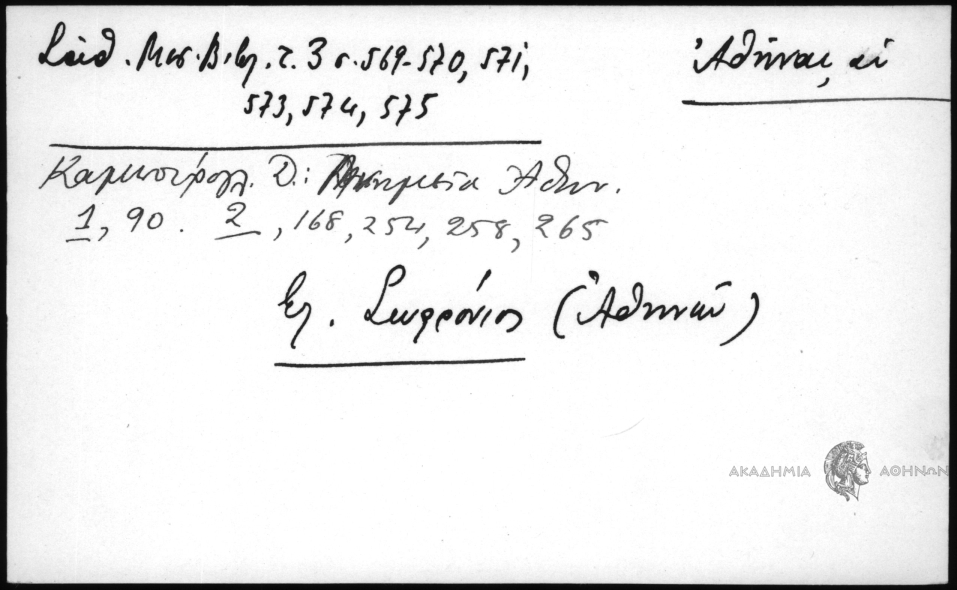 Σάθ. Μεσ. Βιβλ. τ. 3 σ. 569-570, 571,
573, 574, 575
Ἀθῆναι, αἱ
Καμπούρογλ. Δ.: Μνημεῖα Ἀθην.
1, 90. 2, 168, 254, 258, 265
Βλ. Σωφρόνιος (Ἀθηνῶν)
ΑΚΑΔΗΜΙΑ ΑΘΗΝΩΝ